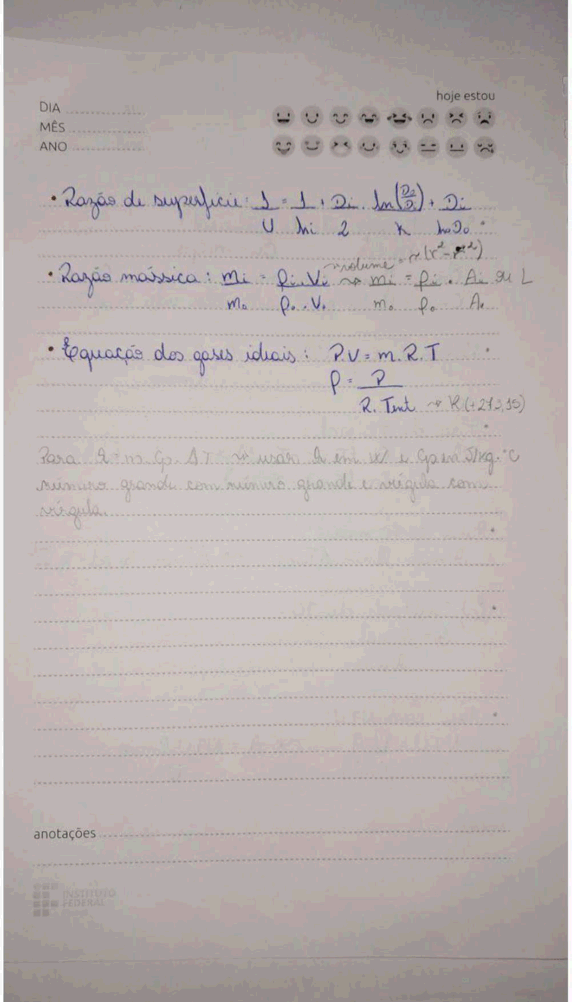 hoje estou
DIA
MÊS
ANO
• Razão de superfície: 1/U = 1/hi + Di/2 . ln(Do/Di)/k + Di/hoDo
volume = π(r²-r²)
• Razão mássica: mi/mo = ρi.Vi/ρo.Vo → mi/mo = ρi/ρo . Ai/Ao L
• Equação dos gases ideais: P.V = m.R.T
ρ = P/R.Tent → K (+273,15)
Para Q = m.Cp.ΔT → usar Q em W e Cp em J/kg.°C
número grande com número grande e vírgula com
vírgula.
anotações
INSTITUTO
FEDERAL